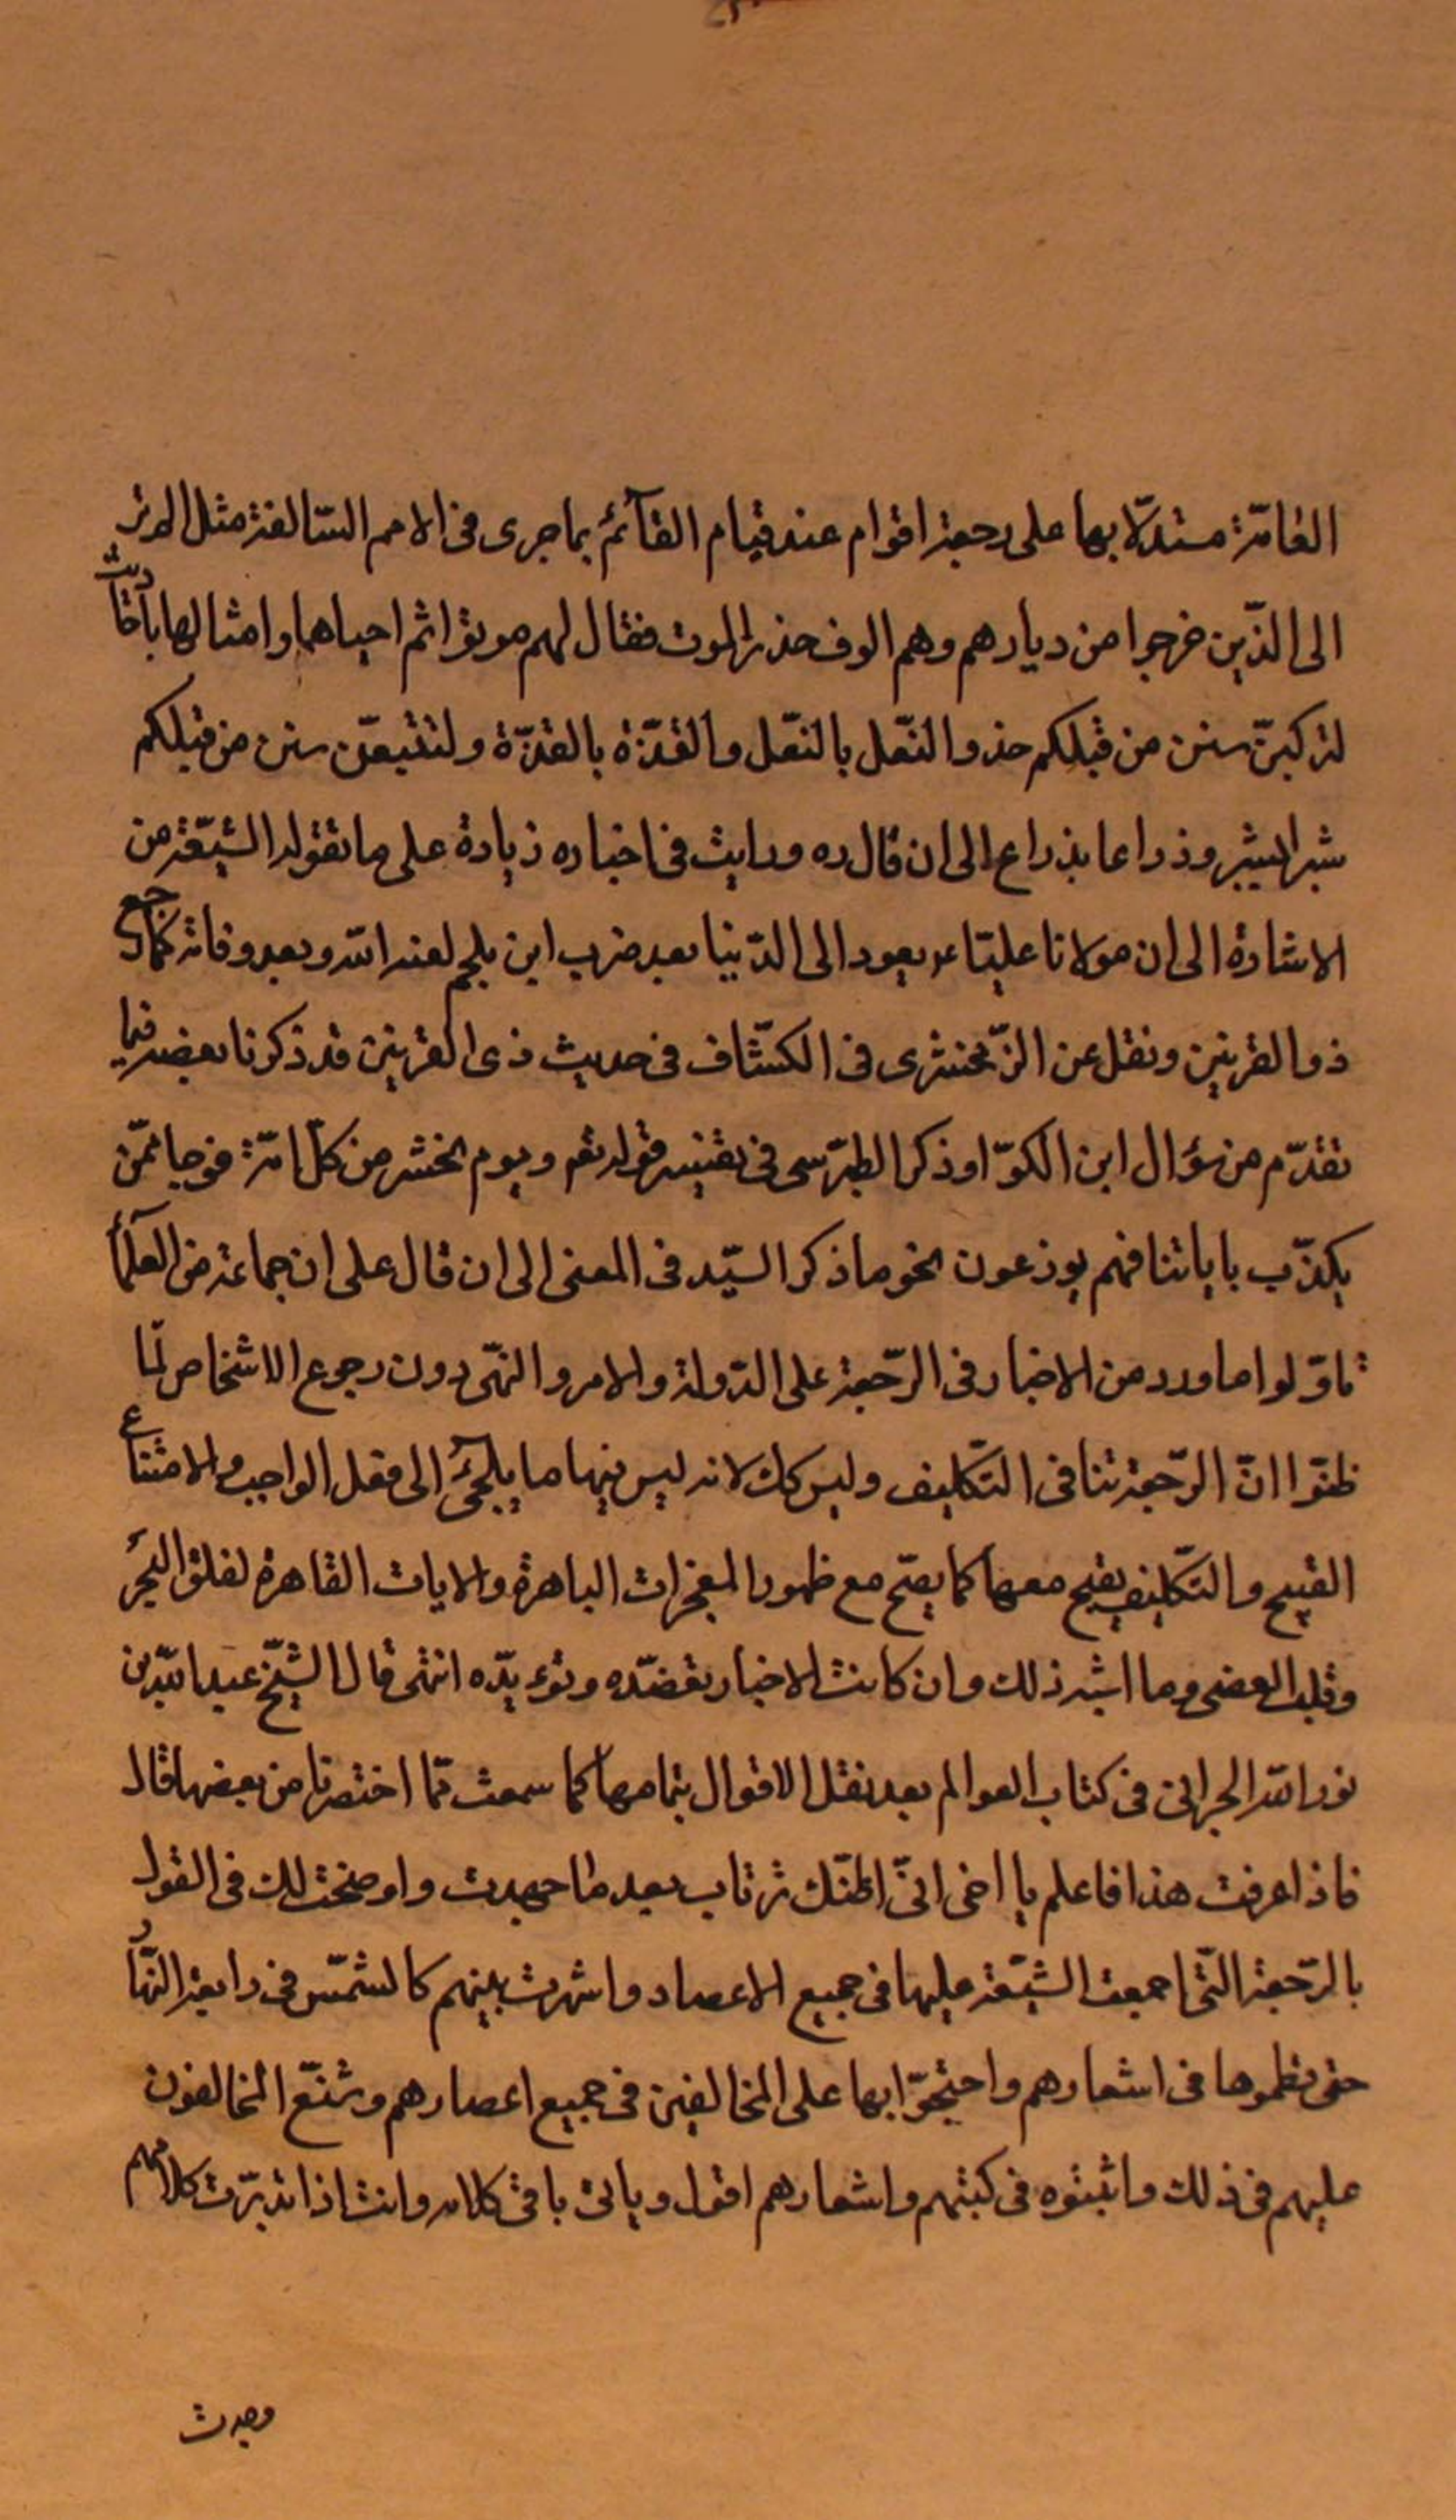 العامّة مستدلّا بها على رجعة اقوام عند قيام القآئم بما جرى فى الامم السّالفة مثل الم تر
الى الذّين خرجوا من ديارهم وهم الوف حذر الموت فقال لهم موتوا ثم احياهم وامثالها باحاديث
لتركبنّ سنن من قبلكم حذو النّعل بالنّعل والقذّة بالقذّة ولتتبعنّ سنن من قبلكم
شبرا بشبر وذراعا بذراع الى ان قال ره ورايت فى اخباره زيادة على ما تقوله الشّيعة من
الاشارة الى ان مولانا عليّا ع يعود الى الدّنيا بعد ضرب ابن ملجم لعنه الله وبعد وفاته كما رجع
ذو القرنين ونقل عن الزّمخشرى فى الكشّاف فى حديث ذى القرنين قد ذكرنا بعضه فيما
تقدّم من سؤال ابن الكوّا وذكر الطبرّسى فى تفسير قوله تعم ويوم نحشر من كلّ امّة فوجا ممّن
يكذّب باياتنا فهم يوزعون نحو ما ذكر السيّد فى المعنى الى ان قال على ان جماعة من العلمآء
تاوّلوا ما ورد من الاخبار فى الرّجعة على الدّولة والامر والنهّى دون رجوع الاشخاص لمّا
ظنّوا انّ الرّجعة تنافى التّكليف وليس كك لانه ليس فيها ما يلجئ الى فعل الواجب والامتناع
القبيح والتّكليف يصح معها كما يصّح مع ظهور المعجزات الباهرة والايات القاهرة لفلق البحر
وقلب العصى وما اشبه ذلك وان كانت الاخبار تعضّده وتؤيّده انتهى قال الشّيخ عبد الله بن
نور الله البحرانى فى كتاب العوالم بعد نقل الاقوال بتمامها كما سمعت ممّا اختصرنا من بعضها قال
فاذا عرفت هذا فاعلم يا اخى انّى اظنّك ترتاب بعد ما مهدت واوضحت لك فى القول
بالرّجعة التّى اجمعت الشّيعة عليها فى جميع الاعصار واشهرت بينهم كالشمّس فى رابعة النهّار
حتى نظموها فى اشعارهم واحتجّوا بها على المخالفين فى جميع اعصارهم وشنّع المخالفون
عليهم فى ذلك واثبتوه فى كتبهم واشعارهم اقول وياتى باقى كلامه وانت اذا تدبرّت كلامهم
وجدت